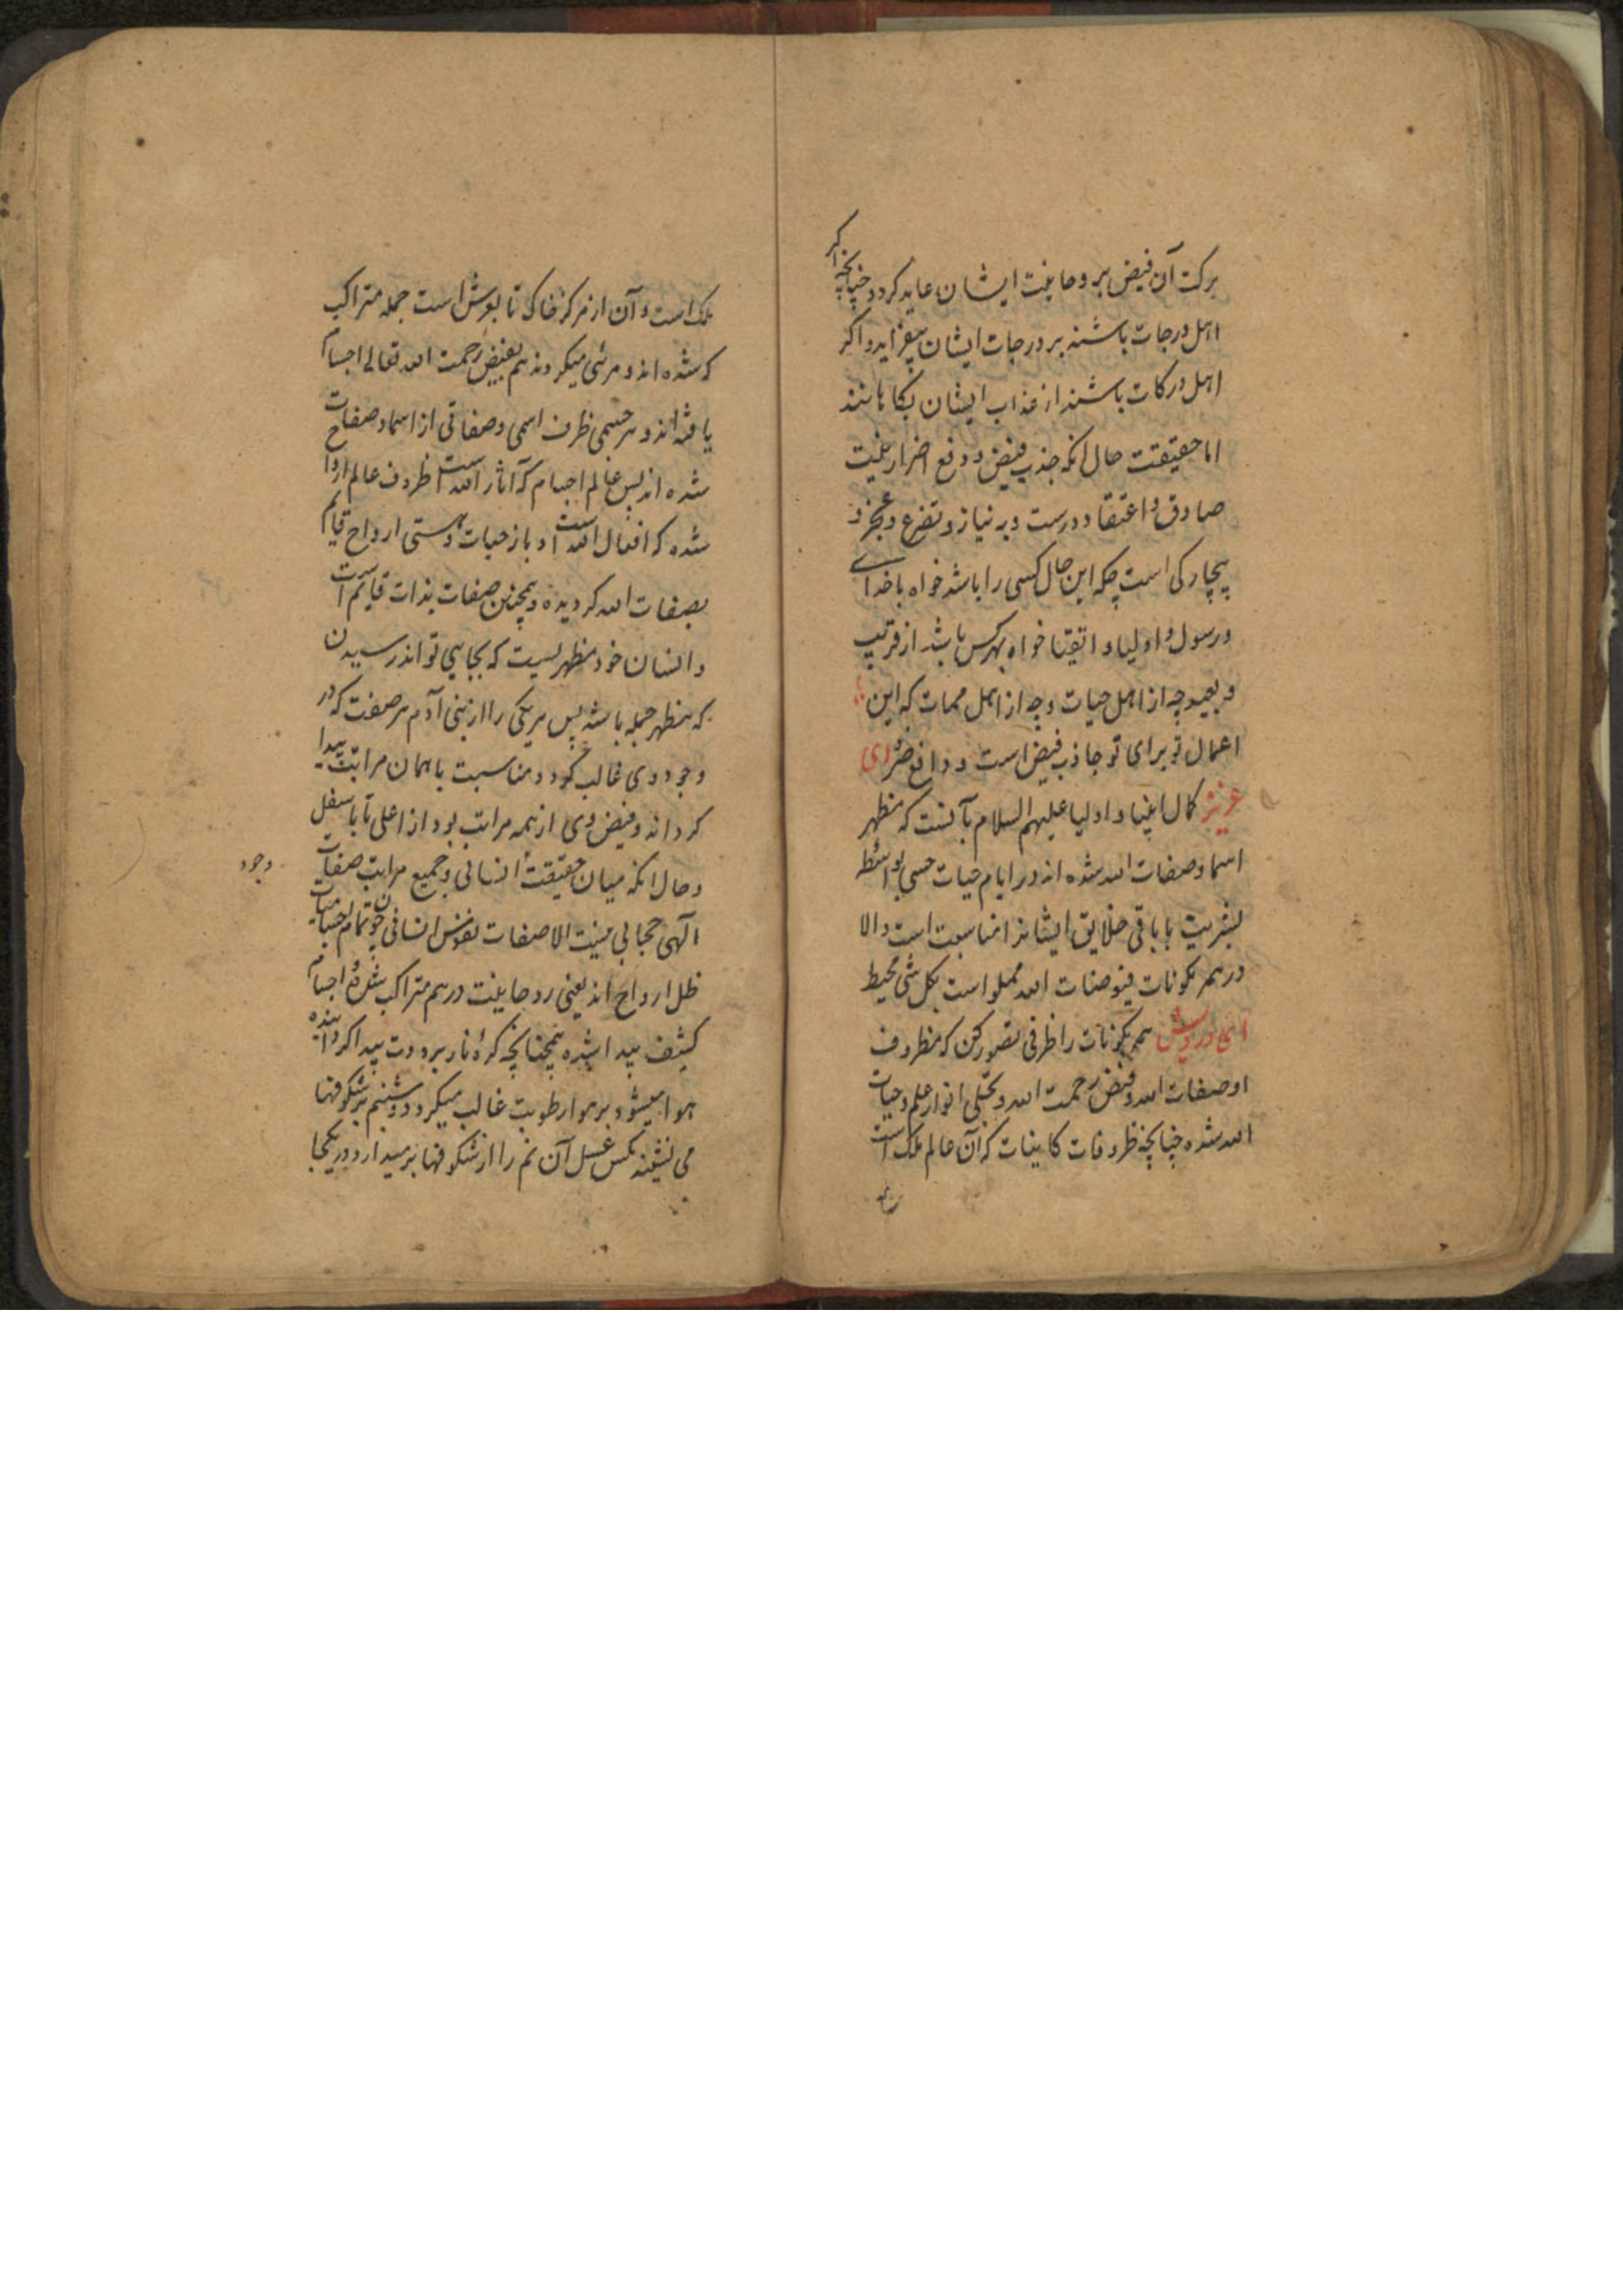 برکت آن فیض بروحانیت ایشان عاید کردد چنانچه اکر
اهل درجات باشند بر درجات ایشان بیفزاید و اکر
اهل درکات باشند از عذاب ایشان بکاهانند
اما حقیقت حال آنکه جذب فیض و دفع اضرار بنیت
صادق و اعتقاد درست و به نیاز و تضرع و عجز و
بیچارکی است چه که این حال کسی را باشد خواه باخدای
و رسول و اولیا و اتقیا خواه بهر کس باشد از قریب
و بعید و چه از اهل حیات و چه از اهل ممات که این
اعمال تو برای تو جاذب فیض است و دافع ضر ای
عزیز کمال انبیا و اولیا علیهم السلام بآنست که مظهر
اسما و صفات الله شده اند در ایام حیات حسی بواسطه
بشریت با باقی خلایق ایشانرا مناسبت است والا
در همه مکونات فیوضات الله مملو است بکل شی محیط
ای درویش همه مکونات را ظرفی تصور کن که مظروف
او صفات الله و فیض رحمت الله و تجلی انوار علم و حیات
الله شده چنانچه ظروفات کاینات که آن عالم ملک است
ملک است و آن از مرکز خاک تا بعرش است جمله متراکب
که شده اند و مرئی میکردند هم بفیض رحمت الله تعالی اجسام
یافته اند و هر جسمی ظرف اسمی و صفاتی از اسما و صفات
شده اند پس عالم اجسام که آثار الله است ظروف عالم ارواح
شده که افعال الله است و باز حیات و هستی ارواح قایم
بصفات الله کردیده و همچنین صفات بذات قایم است
و انسان خود مظهریست که بجایی تواند رسیدن
که مظهر جمله باشد پس هر یکی را از بنی آدم هر صفت که در
وجود وی غالب کردد مناسبت با همان مراتب پیدا
کرداند و فیض وی از همه مراتب بود از اعلی تا باسفل
و حال آنکه میان حقیقت انسانی و جمیع مراتب صفات وجود
الهی حجابی نیست الا صفات نفوس انسانی چون تمام جسمانیات
ظل ارواح اند یعنی روحانیت درهم متراکب شده و اجسام
کثیف پیدا شده همچنانچه کره نار برودت پیدا کرداننده
هوا میشود بر هوا رطوبت غالب میکردد و شبنم بر شکوفها
می نشیند مکس عسل آن نم را از شکوفها برمیدارد و در یکجا